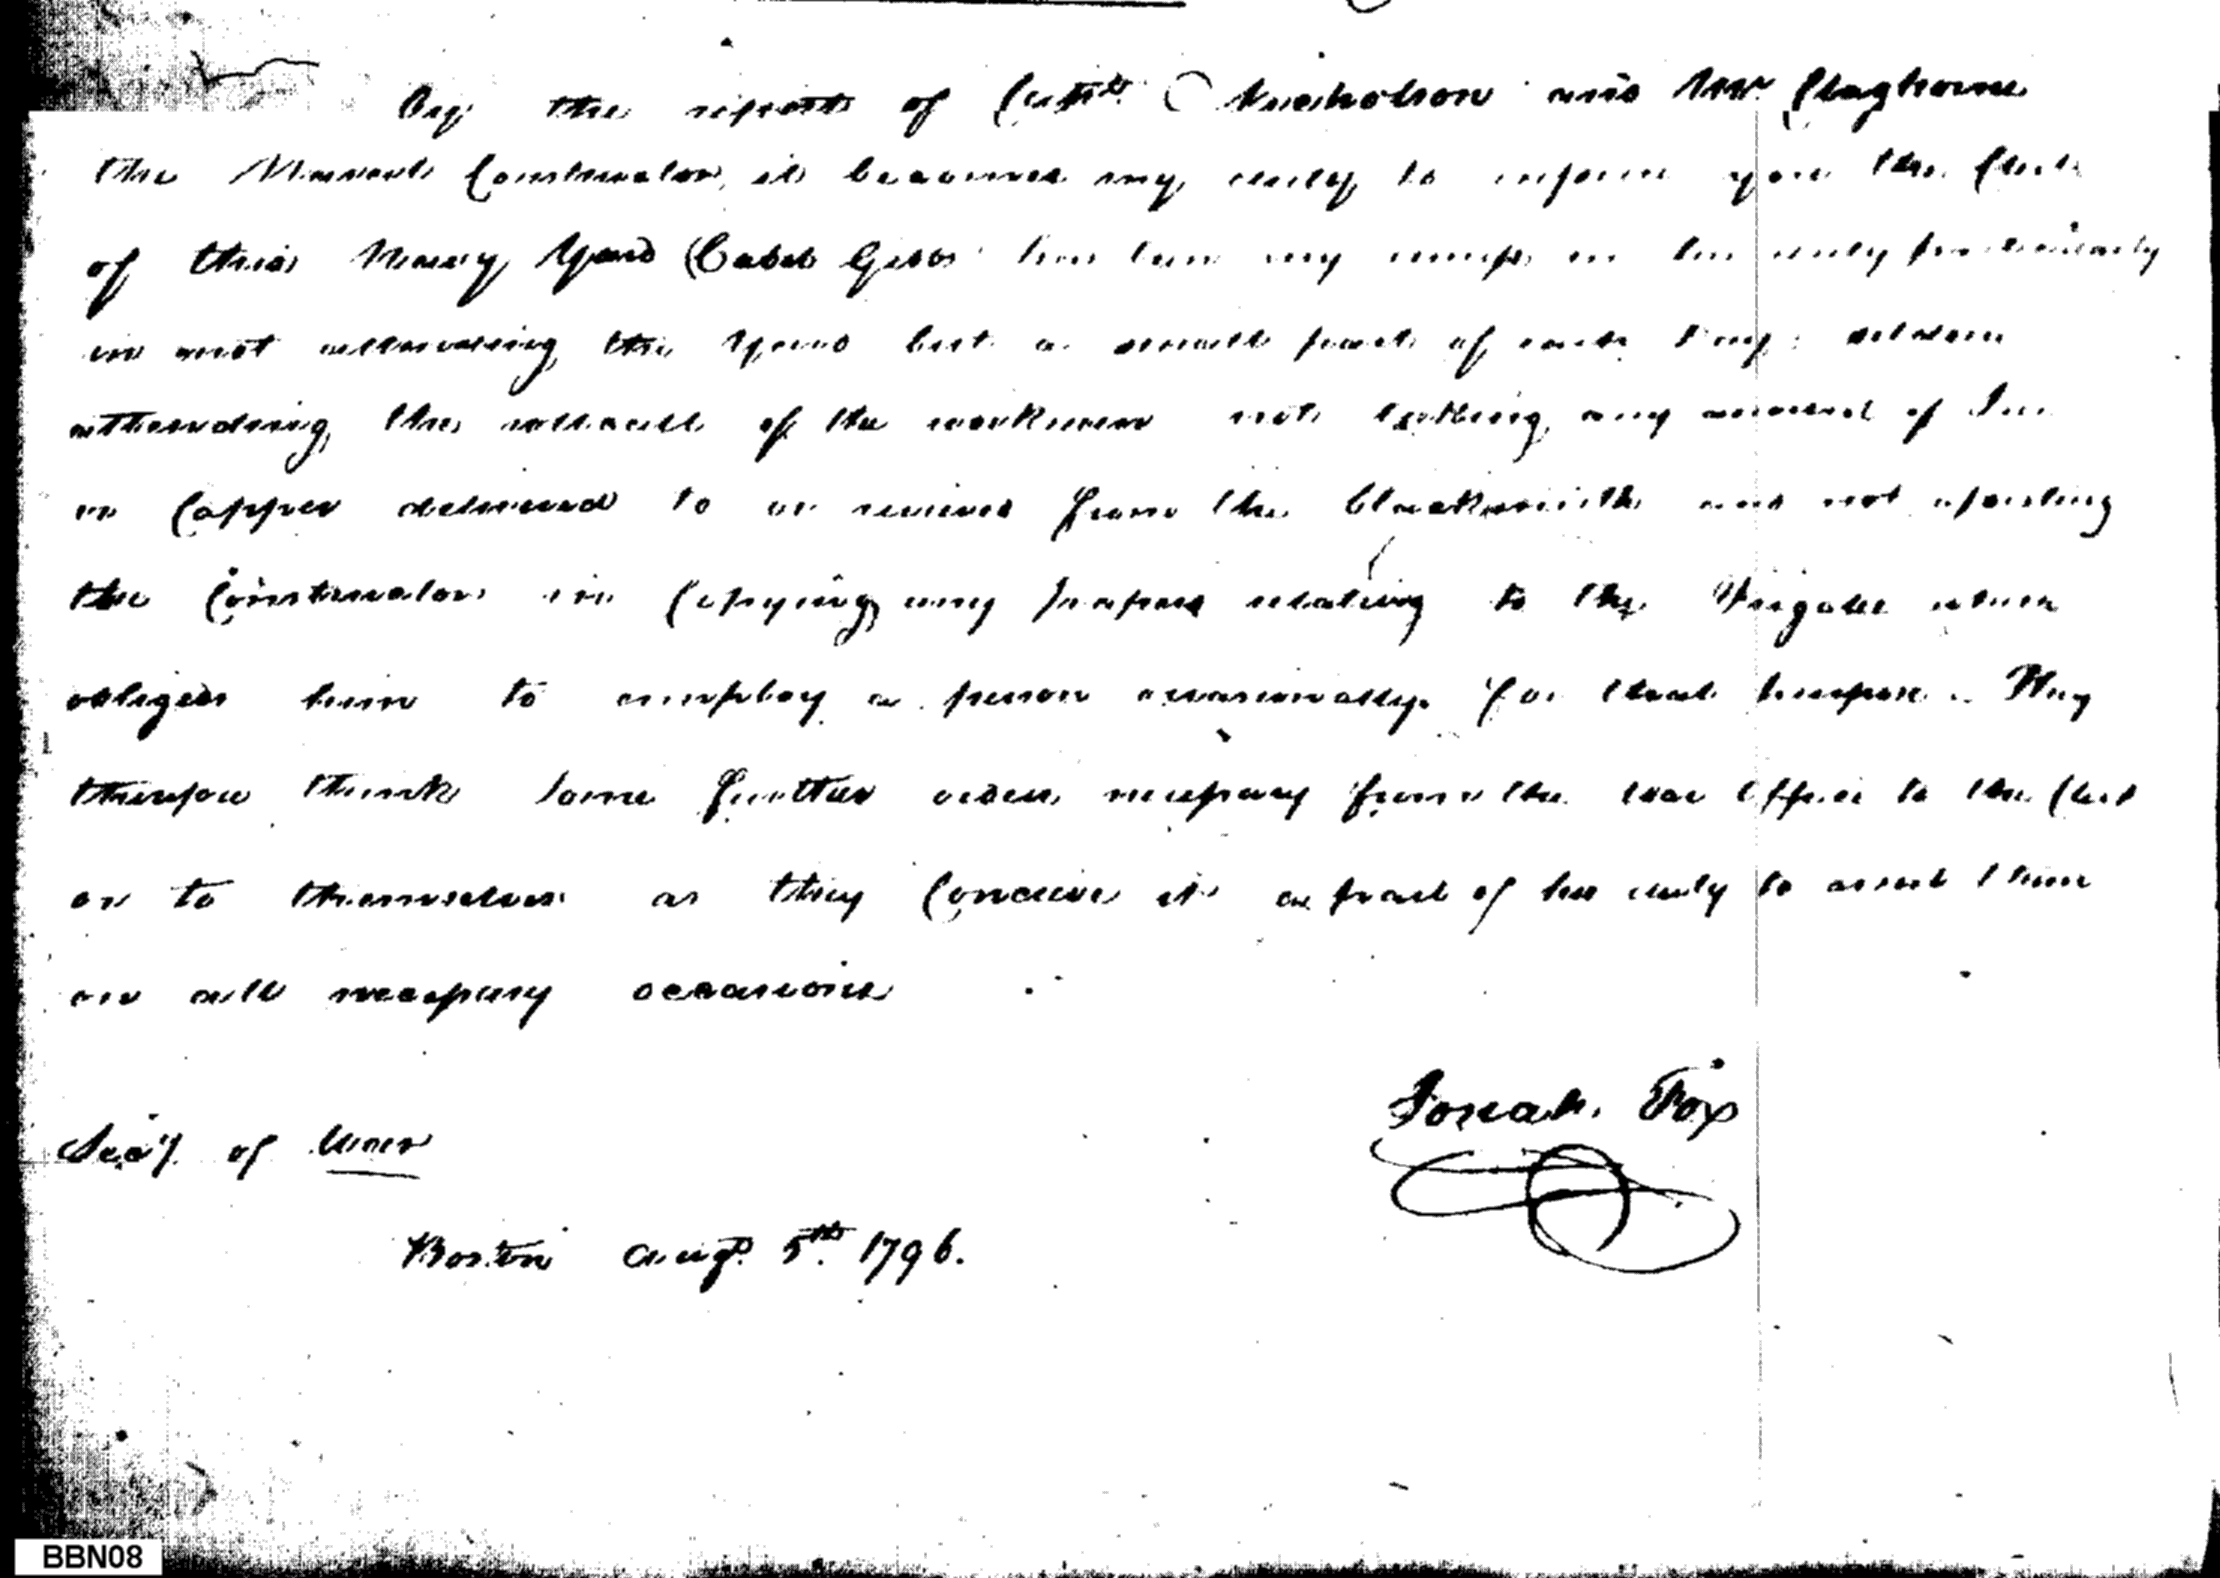 By the reports of Captn. Nicholson and Mr. Claghorne
the Naval Constructor, it becomes my duty to inform you the Clerk
of this Navy Yard (Caleb Gibbs) has been very remiss in his duty particularly
in not attending the Yard but a small part of each day; seldom
attending the rollcall of the workmen not taking any account of Iron
or Copper delivered to or received from the blacksmiths and not assisting
the Constructor in Copying any papers relating to the Frigate which
obliges him to employ a person occasionally for that purpose. They
therefore think some further orders necessary from the War Office to the Clerk
or to themselves as they Conceive it a part of his duty to assist them
on all necessary occasions
Josiah Fox
Secy. of War
Boston Augt. 5th. 1796.
BBN08